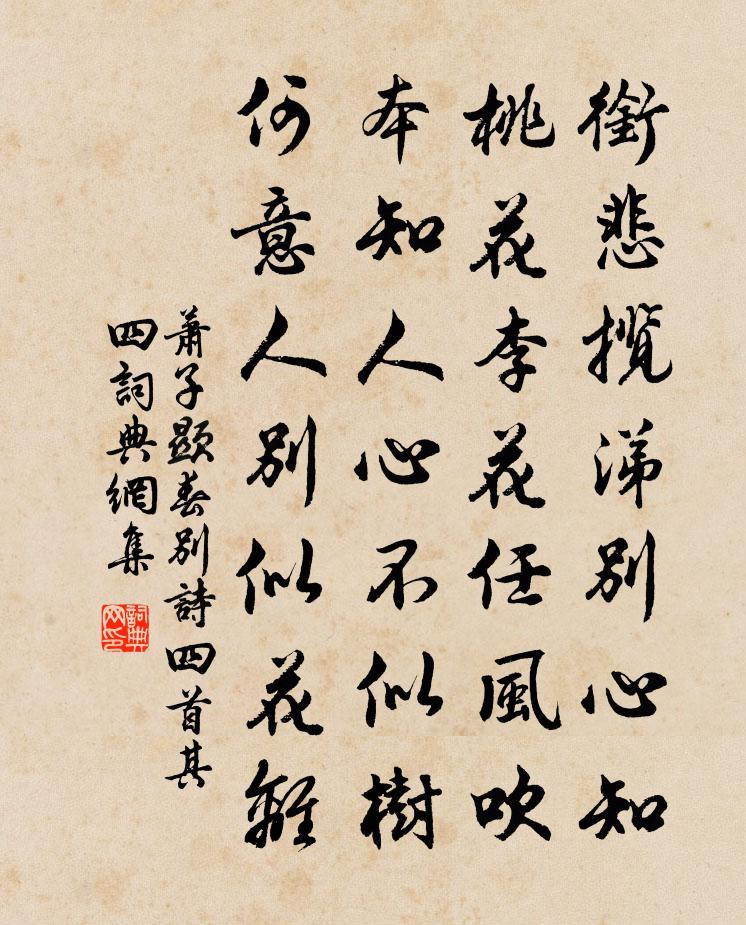 銜悲攬涕別心知
桃花李花任風吹
本知人心不似樹
何意人別似花離
蕭子顯春別詩四首其
四詞典網集
詞典网印